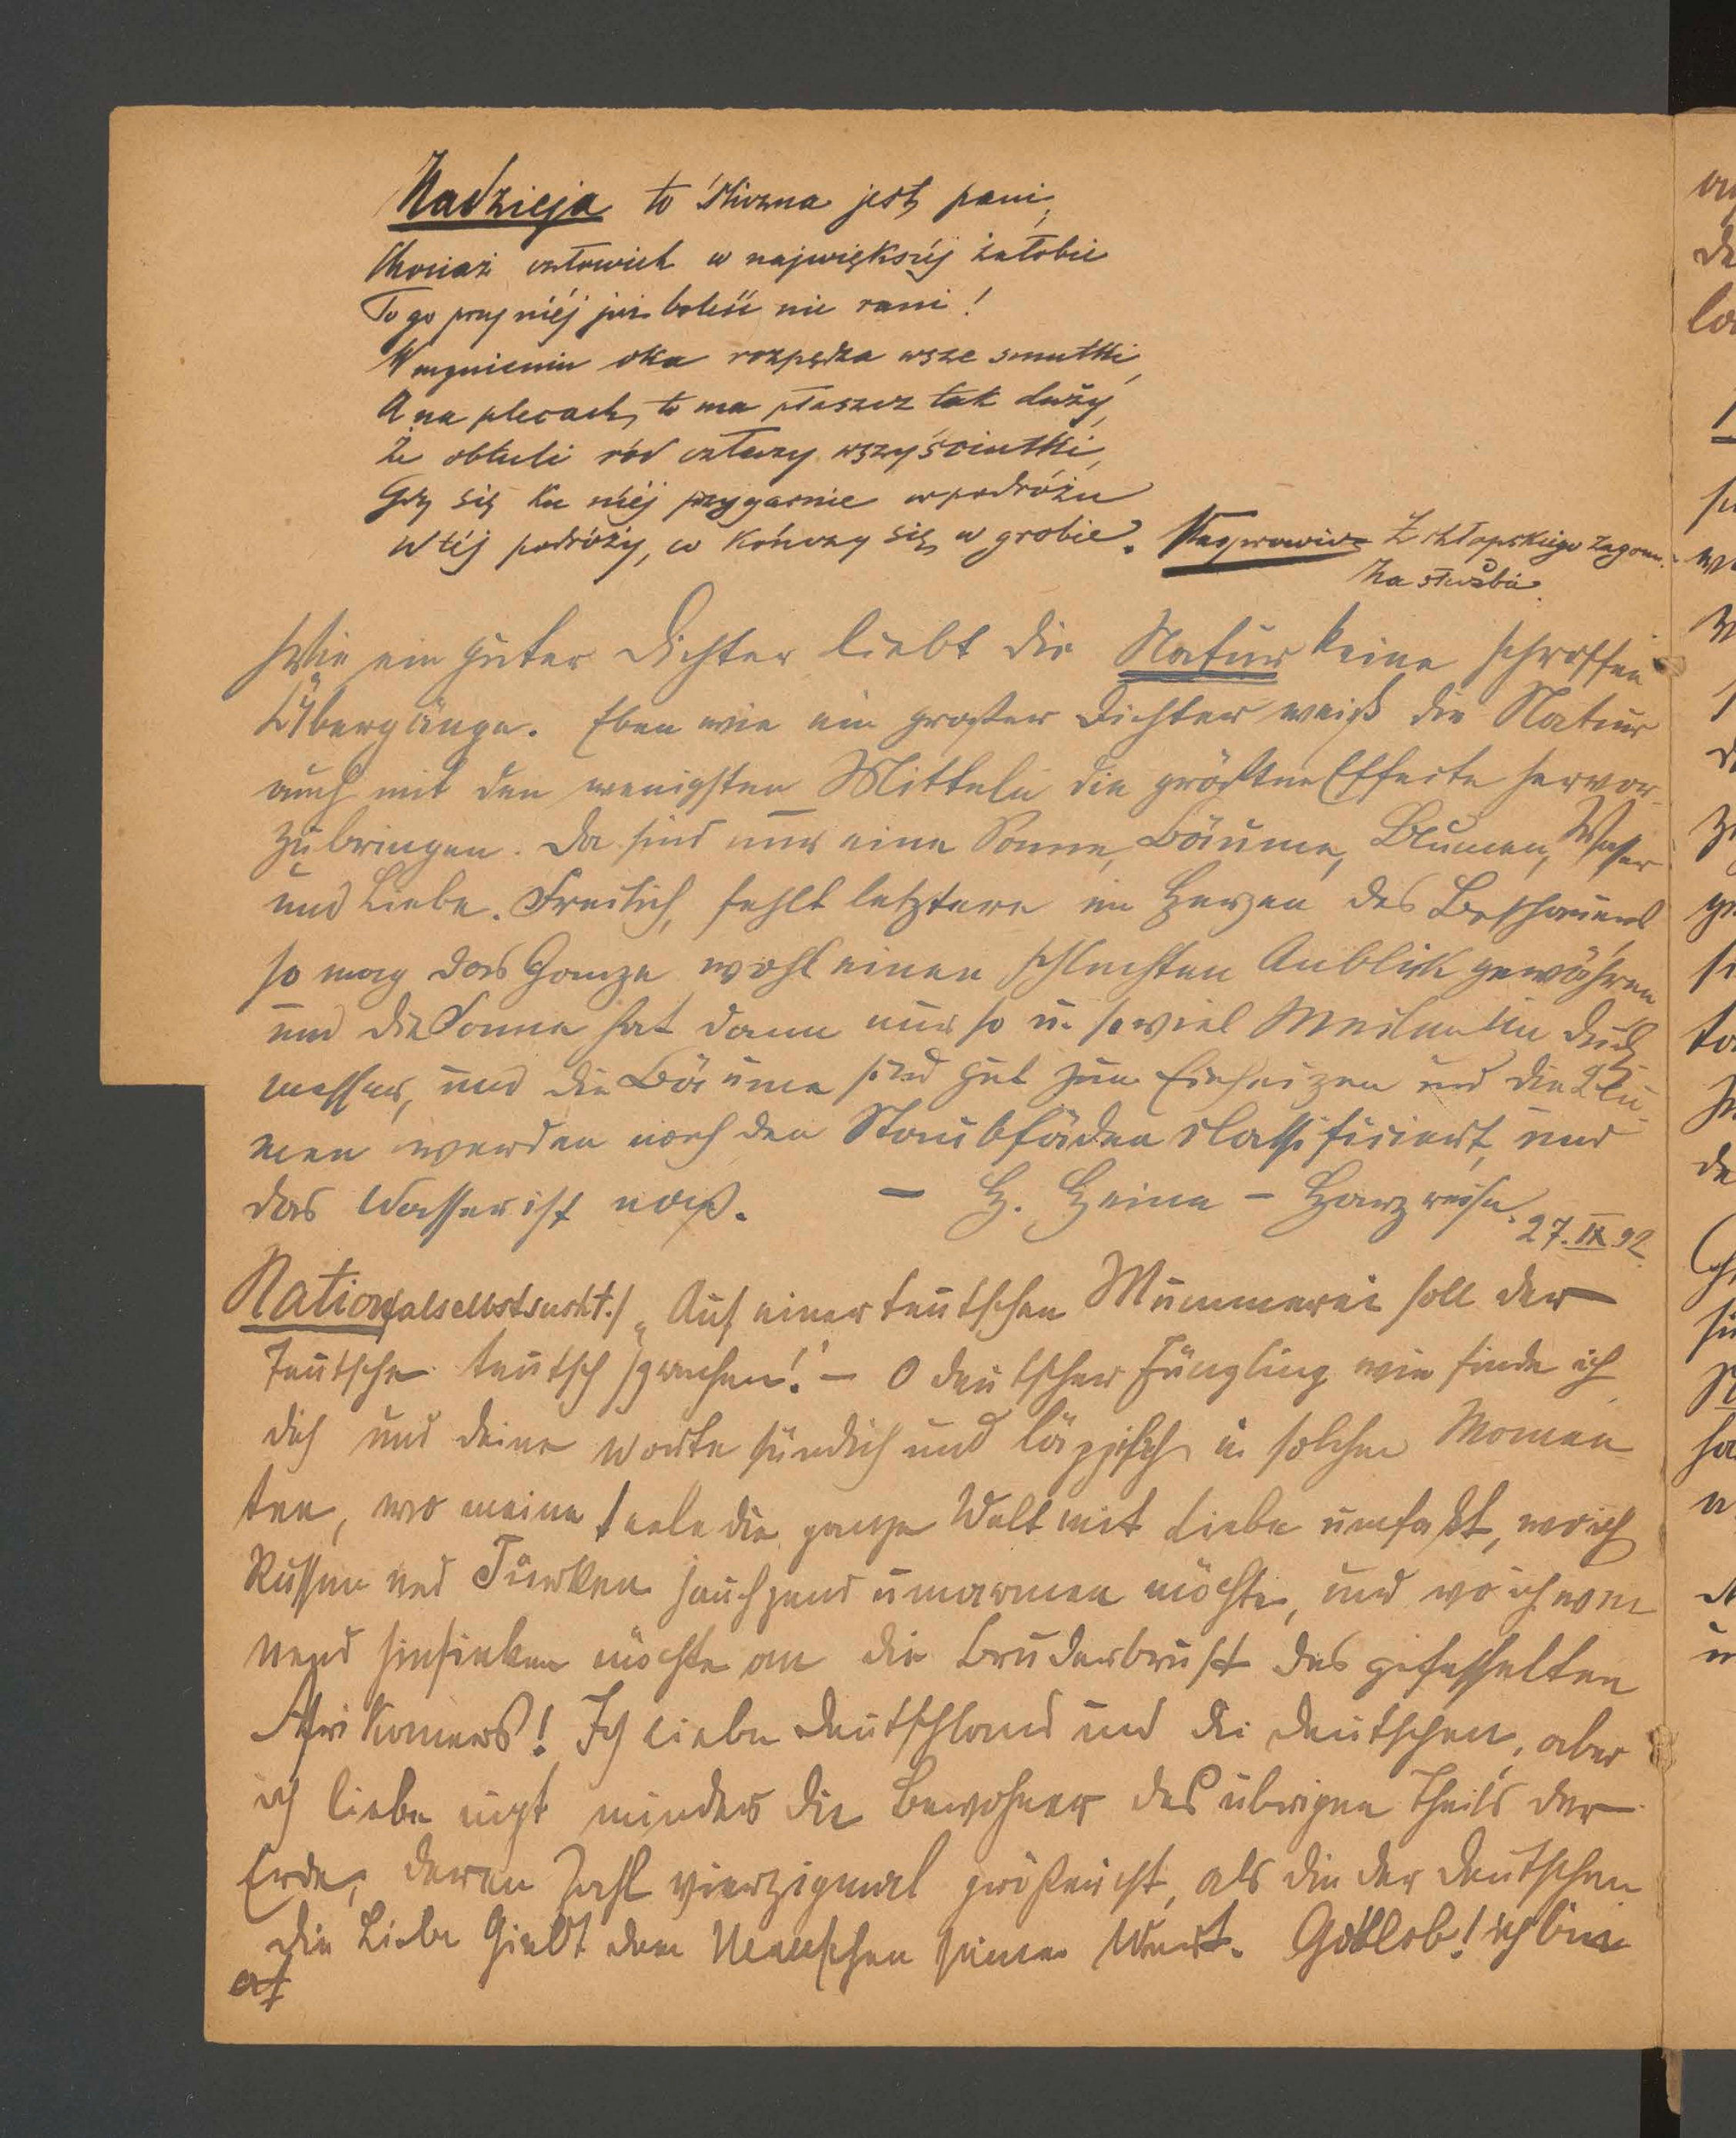 Nadzieja to śliczna jest pani,
Chociaż człowiek w największéj żałobie
To go przy niéj już boleść nie rani!
W mgnieniu oka rozpędza wsze smutki,
A na plecach, to ma płaszcz tak duży,
Że obtuli ród człeczy wszyściutki,
Gdy się ku niéj przygarnie w podróżu
W téj podróży, co kończy się w grobie. Kasprowicz Z chłopskiego zagonu.
Na służbie.
Wie ein guter Dichter liebt die Natur keine schroffen
Übergänge. Eben wie ein großer Dichter weiß die Natur
auch mit den wenigsten Mitteln die größten Effecte hervor-
zubringen. Da sind nur eine Sonne, Bäume, Blumen, Wasser
und Liebe. Freilich, fehlt letztere im Herzen des Beschauers
so mag das Ganze wohl einen schlechten Anblick gewähren
und die Sonne hat dann nur so u. soviel Meilen im Durch
messer, und die Bäume sind gut zum Einheizen und die Blu-
men werden nach den Staubfäden classificiert, und
das Wasser ist naß. — H. Heine – Harzreise. 27.IX 92.
Nationalselbstsucht./ „Auf einer teutschen Mummerei soll der
Teutsche teutsch sprechen!" – O deutscher Jüngling wie finde ich
dich und deine Worte sündlich und läppisch in solchen Momen
ten, wo meine Seele die ganze Welt mit Liebe umfaßt, wo ich
Russen und Türken jauchzend umarmen möchte, und wo ich wei
nend hinsinken möchte an die Bruderbrust des gefesselten
Afrikaners! Ich liebe Deutschland und die Deutschen, aber
ich liebe nicht minder die Bewohner des übrigen Theils der
Erde, deren Zahl vierzigmal größer ist, als die der Deutschen
Die Liebe giebt dem Menschen seinen Wert. Gottlob! ich bin